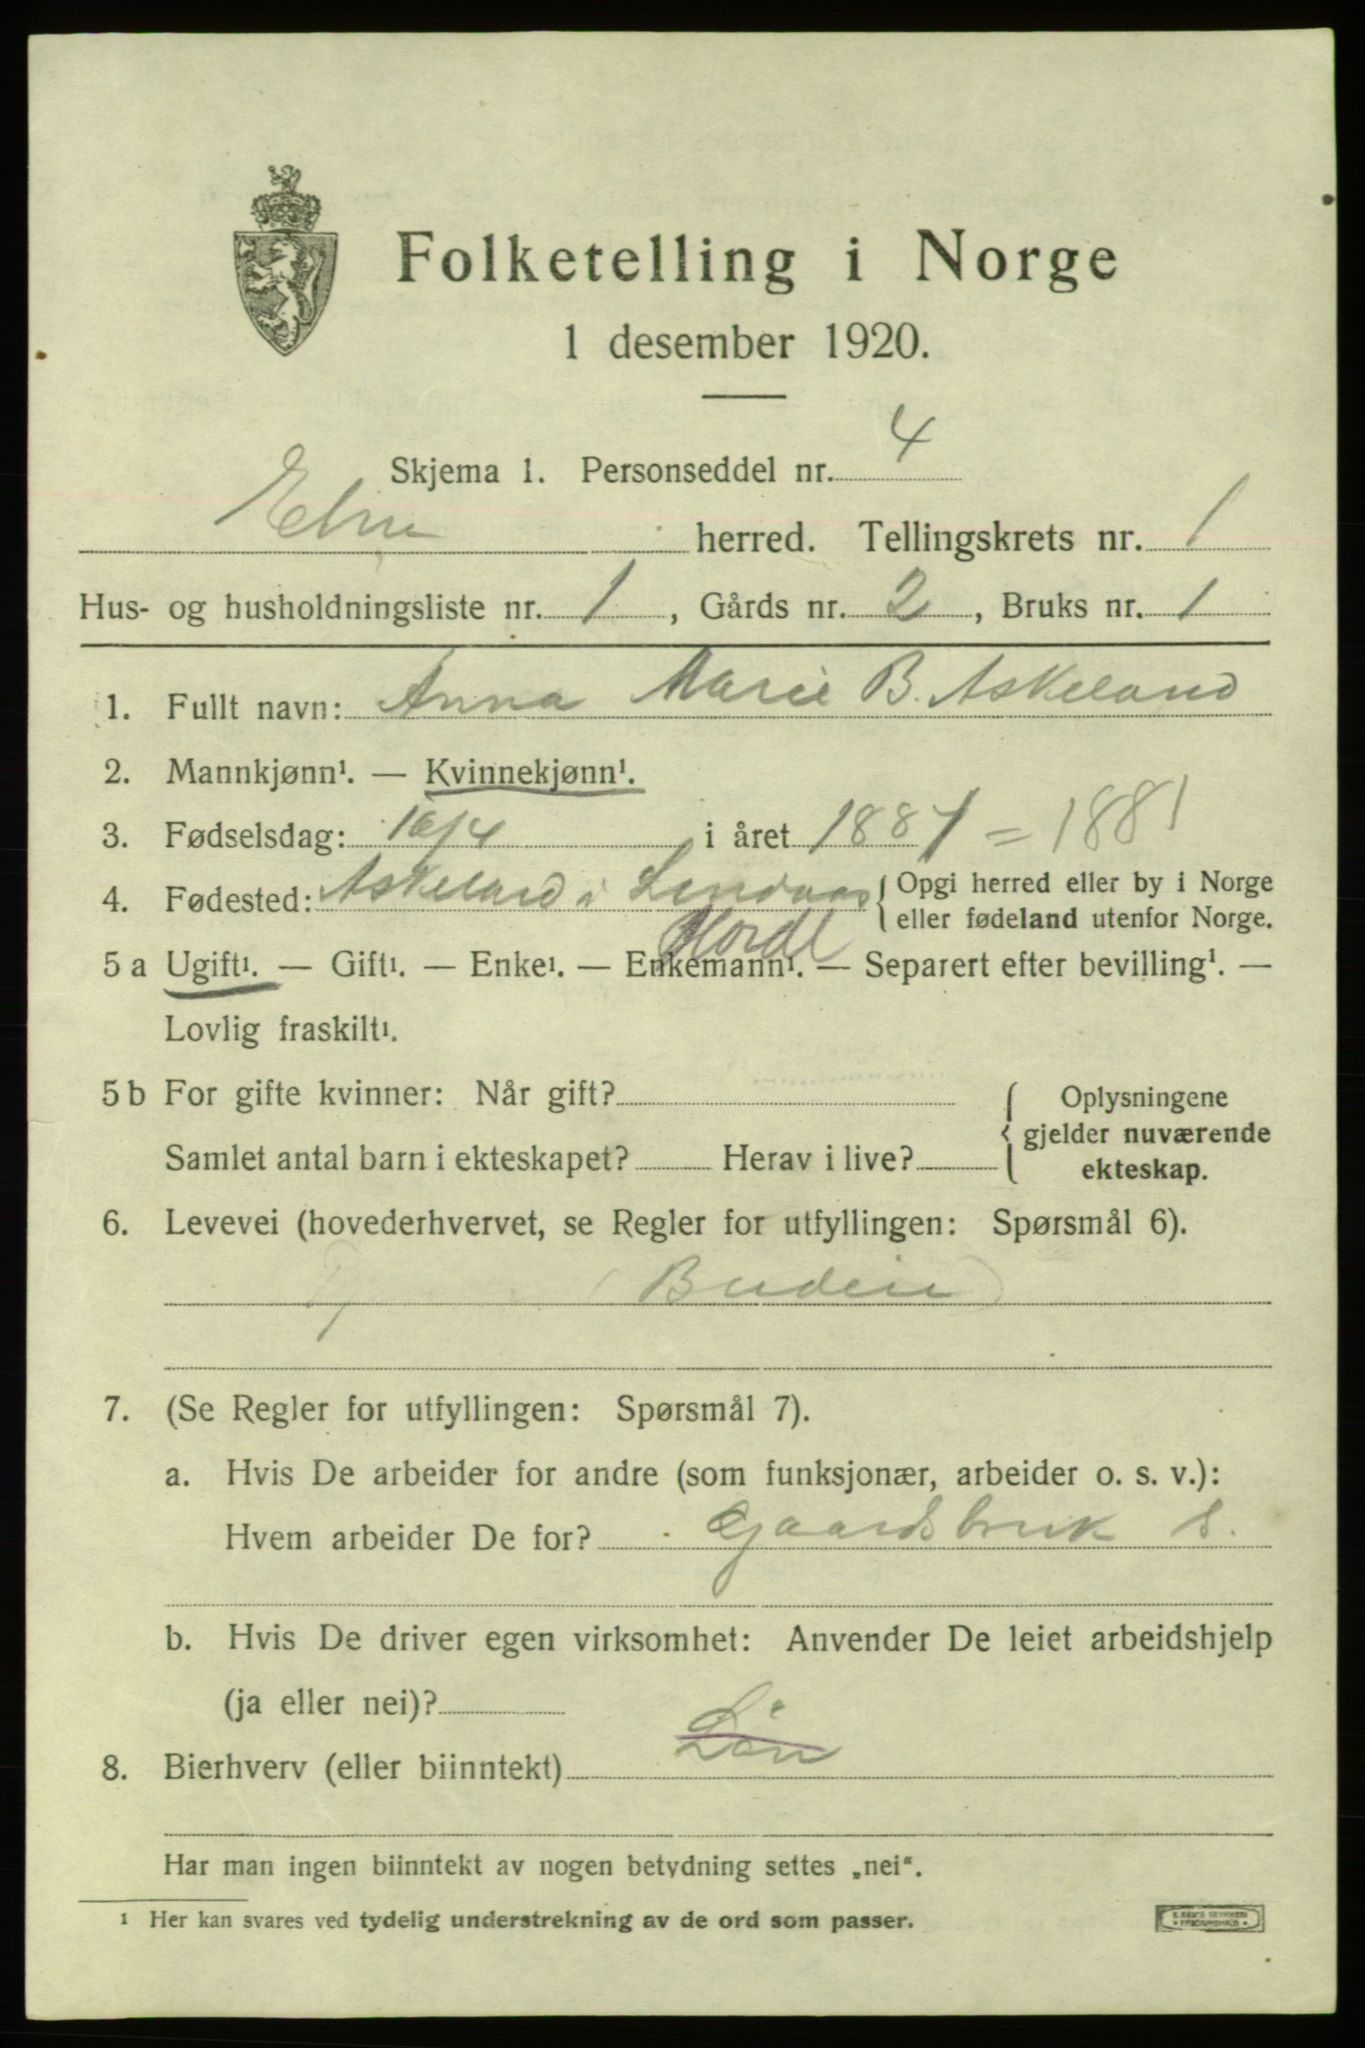 Folketelling i Norge
1 desember 1920.
Skjema 1. Personseddel nr. 4
Elvu herred. Tellingskrets nr. 1
Hus- og husholdningsliste nr. 1, Gårds nr. 2, Bruks nr. 1
1. Fullt navn: Anna Marie B. Askeland
2. Mannkjønn¹. — Kvinnekjønn¹.
3. Fødselsdag: 16/4 i året 1881 = 1881
4. Fødested: Askeland i Lindaas { Opgi herred eller by i Norge
eller fødeland utenfor Norge.
Hordl
5 a Ugift¹. — Gift¹. — Enke¹. — Enkemann¹. — Separert efter bevilling¹. —
Lovlig fraskilt¹.
5 b For gifte kvinner: Når gift?
Samlet antal barn i ekteskapet? Herav i live?
{ Oplysningene
gjelder nuværende
ekteskap.
6. Levevei (hovederhvervet, se Regler for utfyllingen: Spørsmål 6).
Budeie
7. (Se Regler for utfyllingen: Spørsmål 7).
a. Hvis De arbeider for andre (som funksjonær, arbeider o. s. v.):
Hvem arbeider De for? Gaardsbruk s.
b. Hvis De driver egen virksomhet: Anvender De leiet arbeidshjelp
(ja eller nei)?
8. Bierhverv (eller biinntekt) Løn
Har man ingen biinntekt av nogen betydning settes „nei“.
¹ Her kan svares ved tydelig understrekning av de ord som passer.